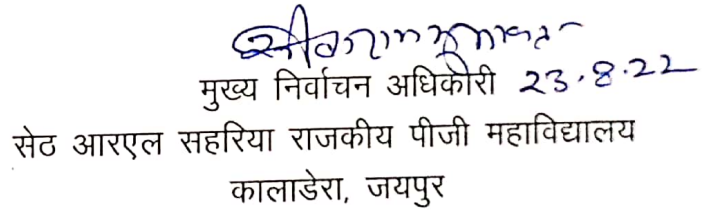 मुख्य निर्वाचन अधिकारी 23.8.22
सेठ आरएल सहरिया राजकीय पीजी महाविद्यालय
कालाडेरा, जयपुर